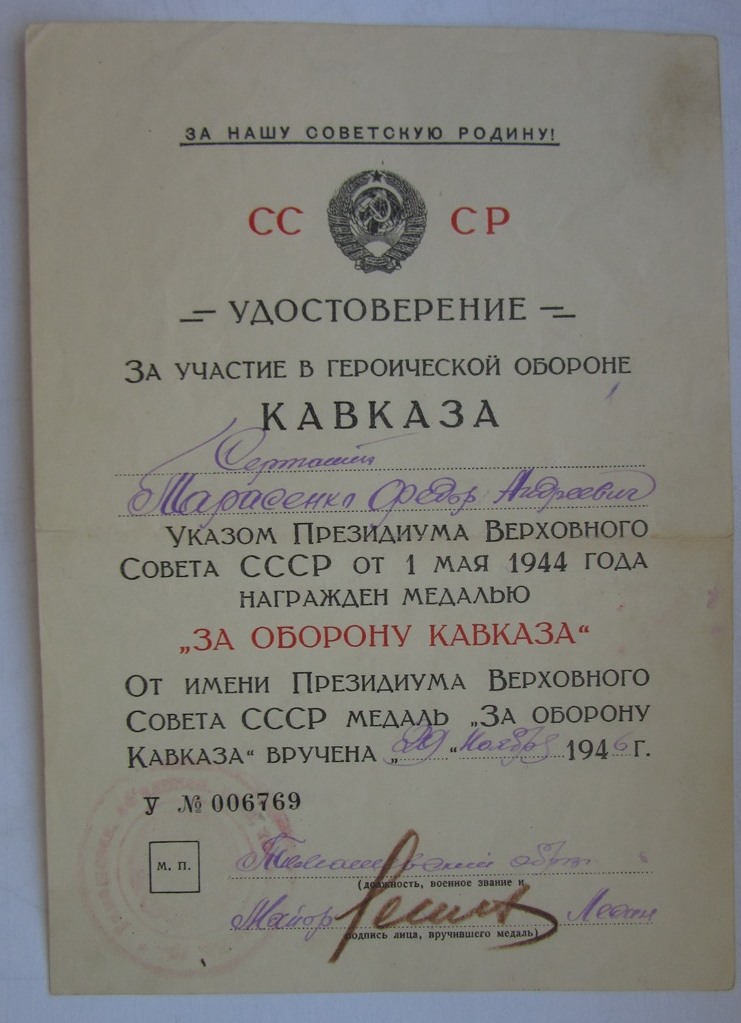 ЗА НАШУ СОВЕТСКУЮ РОДИНУ!
СС СР
УДОСТОВЕРЕНИЕ
ЗА УЧАСТИЕ В ГЕРОИЧЕСКОЙ ОБОРОНЕ
КАВКАЗА
Марасенко Федор Андреевич
УКАЗОМ ПРЕЗИДИУМА ВЕРХОВНОГО
СОВЕТА СССР ОТ 1 МАЯ 1944 ГОДА
НАГРАЖДЕН МЕДАЛЬЮ
„ЗА ОБОРОНУ КАВКАЗА“
ОТ ИМЕНИ ПРЕЗИДИУМА ВЕРХОВНОГО
СОВЕТА СССР МЕДАЛЬ „ЗА ОБОРОНУ
КАВКАЗА“ ВРУЧЕНА „29“ Ноября 1946 г.
У № 006769
М. П.
(должность, военное звание и
Майор
подпись лица, вручившего медаль)